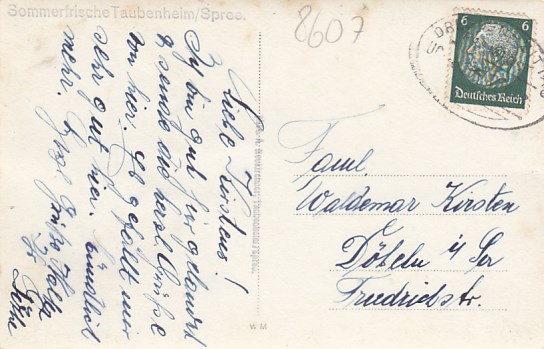 Sommerfrische Taubenheim/Spree.
8607
Liebe Kirstens!
Ich bin gut hier gelandet
& sende die herzl. Grüße
von hier. Es gefällt mir
sehr gut hier. Mündlich
mehr.
6 6
Deutsches Reich
Faml.
Waldemar Kirsten
Döbeln i/ Sa
Friedrichstr.
W M